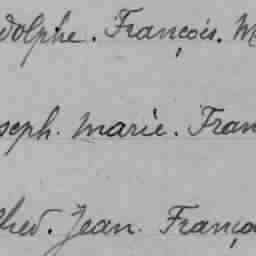 dolphe. François. M
seph. Marie. Fran
fred. Jean. Franço